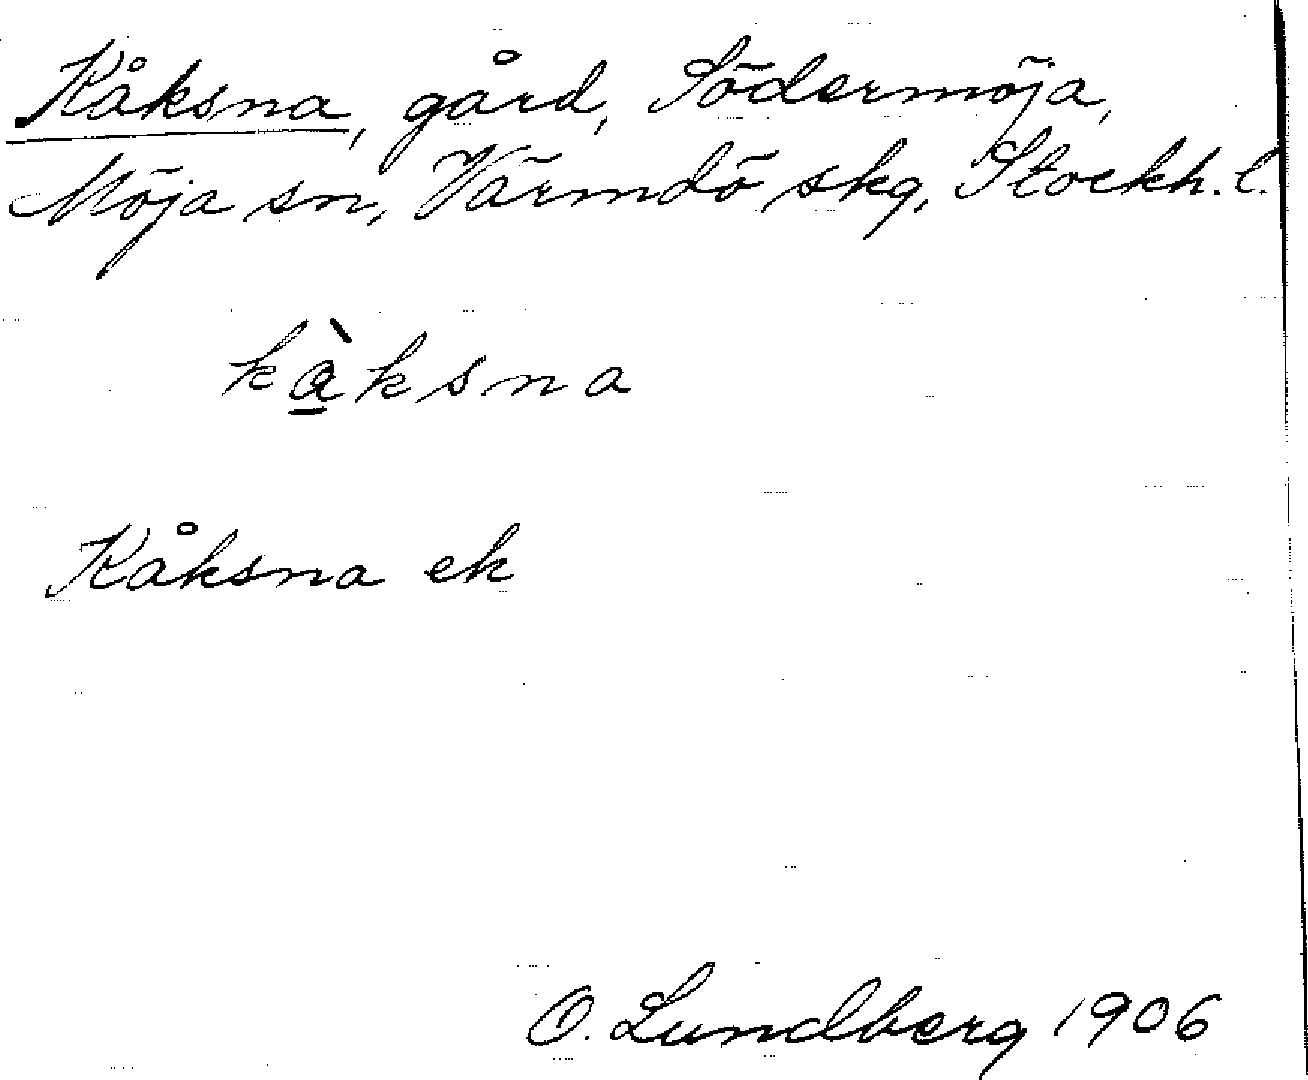 Kåksna, gård, Södermöja,
Möja sn, Värmdö skg, Stockh. l.
kà̱ksna
Kåksna ek
O. Lundberg 1906